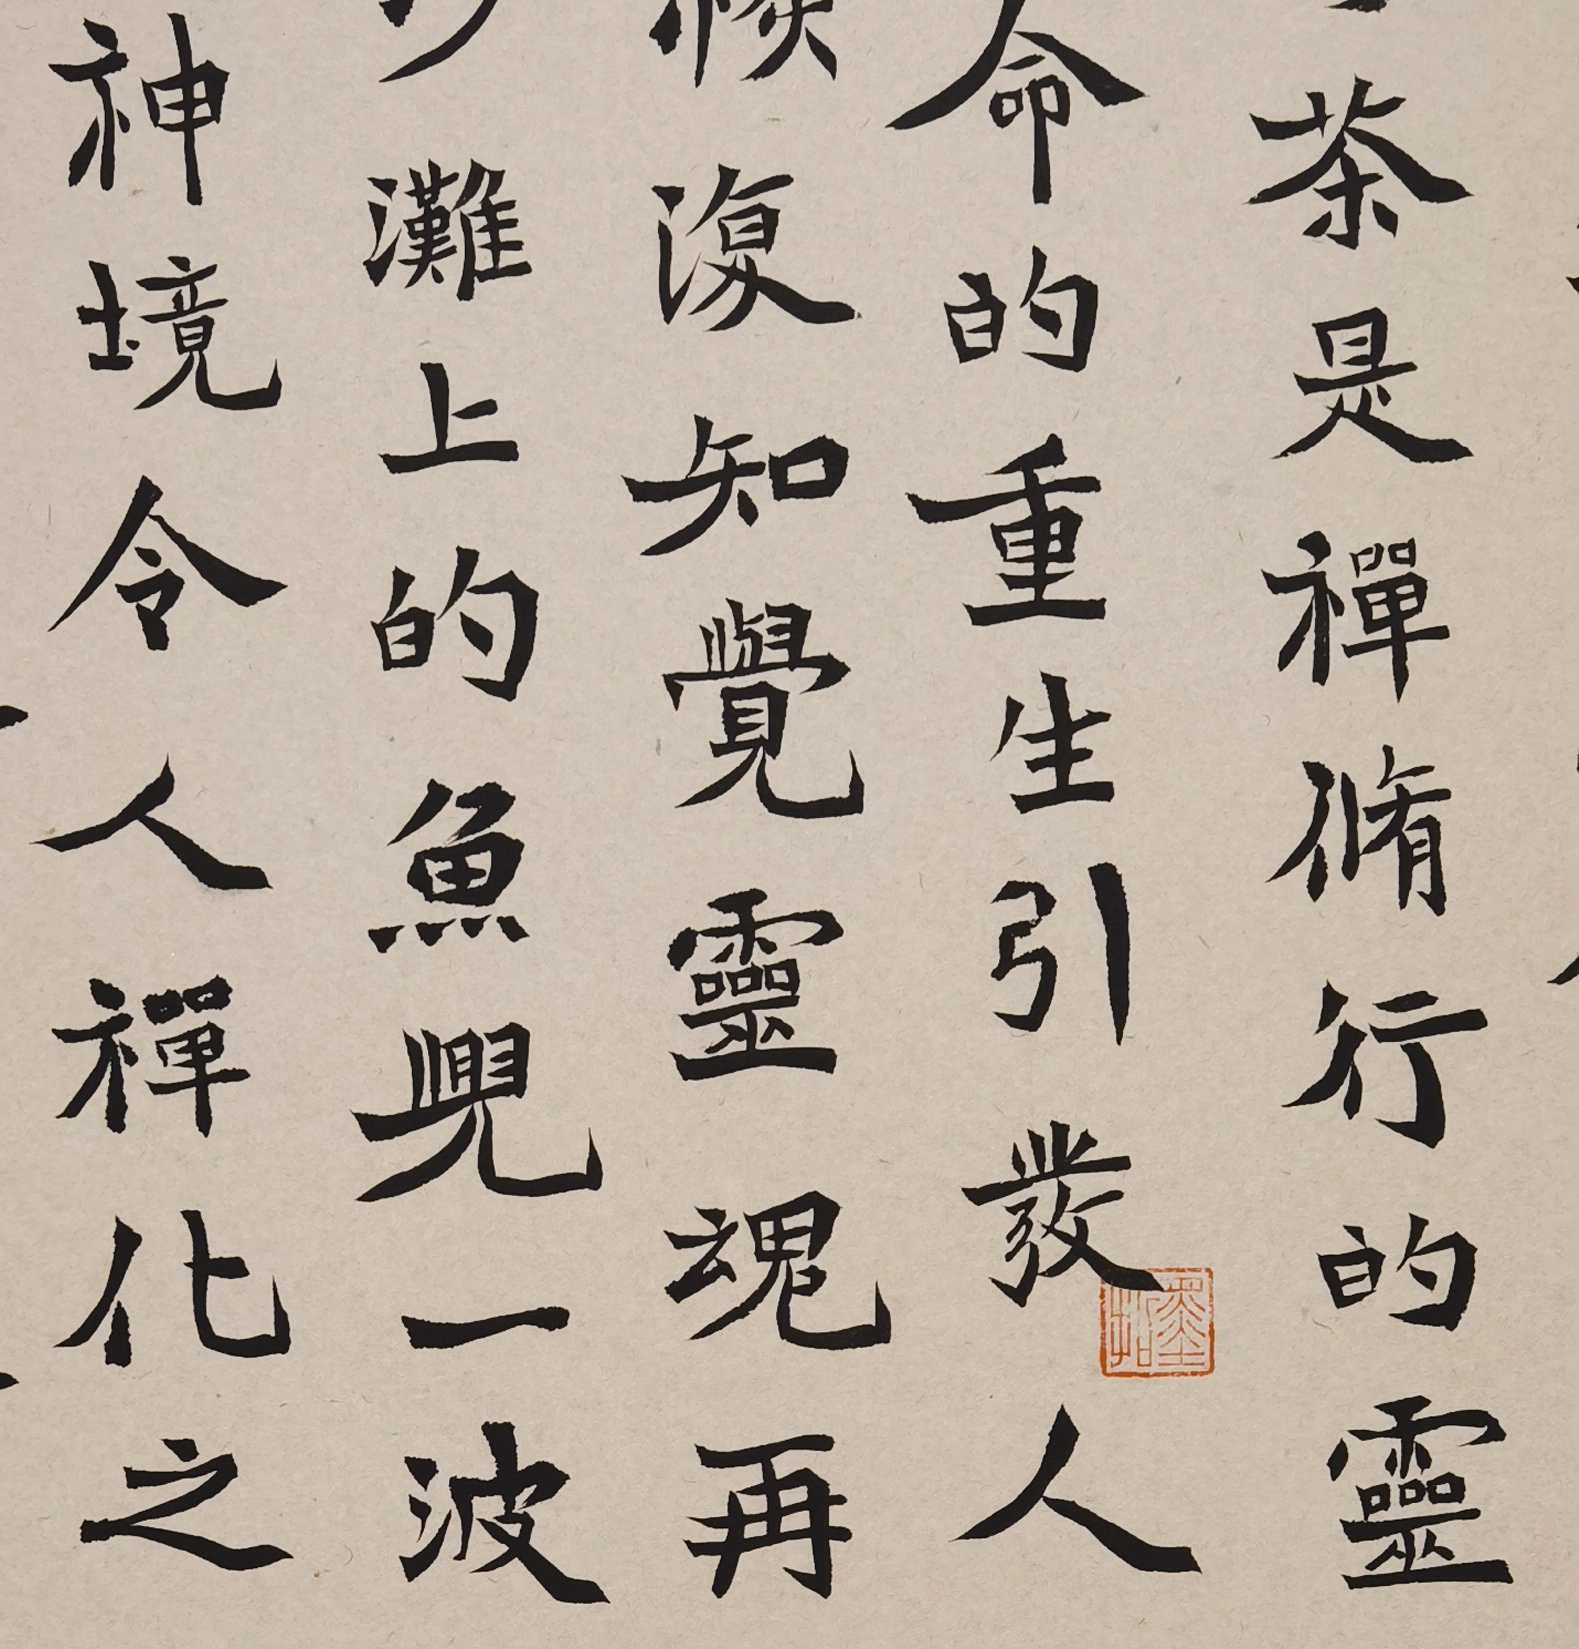 茶是禪脩行的靈
命的重生引發人
復知覺靈魂再
灘上的魚興一波
神境令人禪化之
墨拓